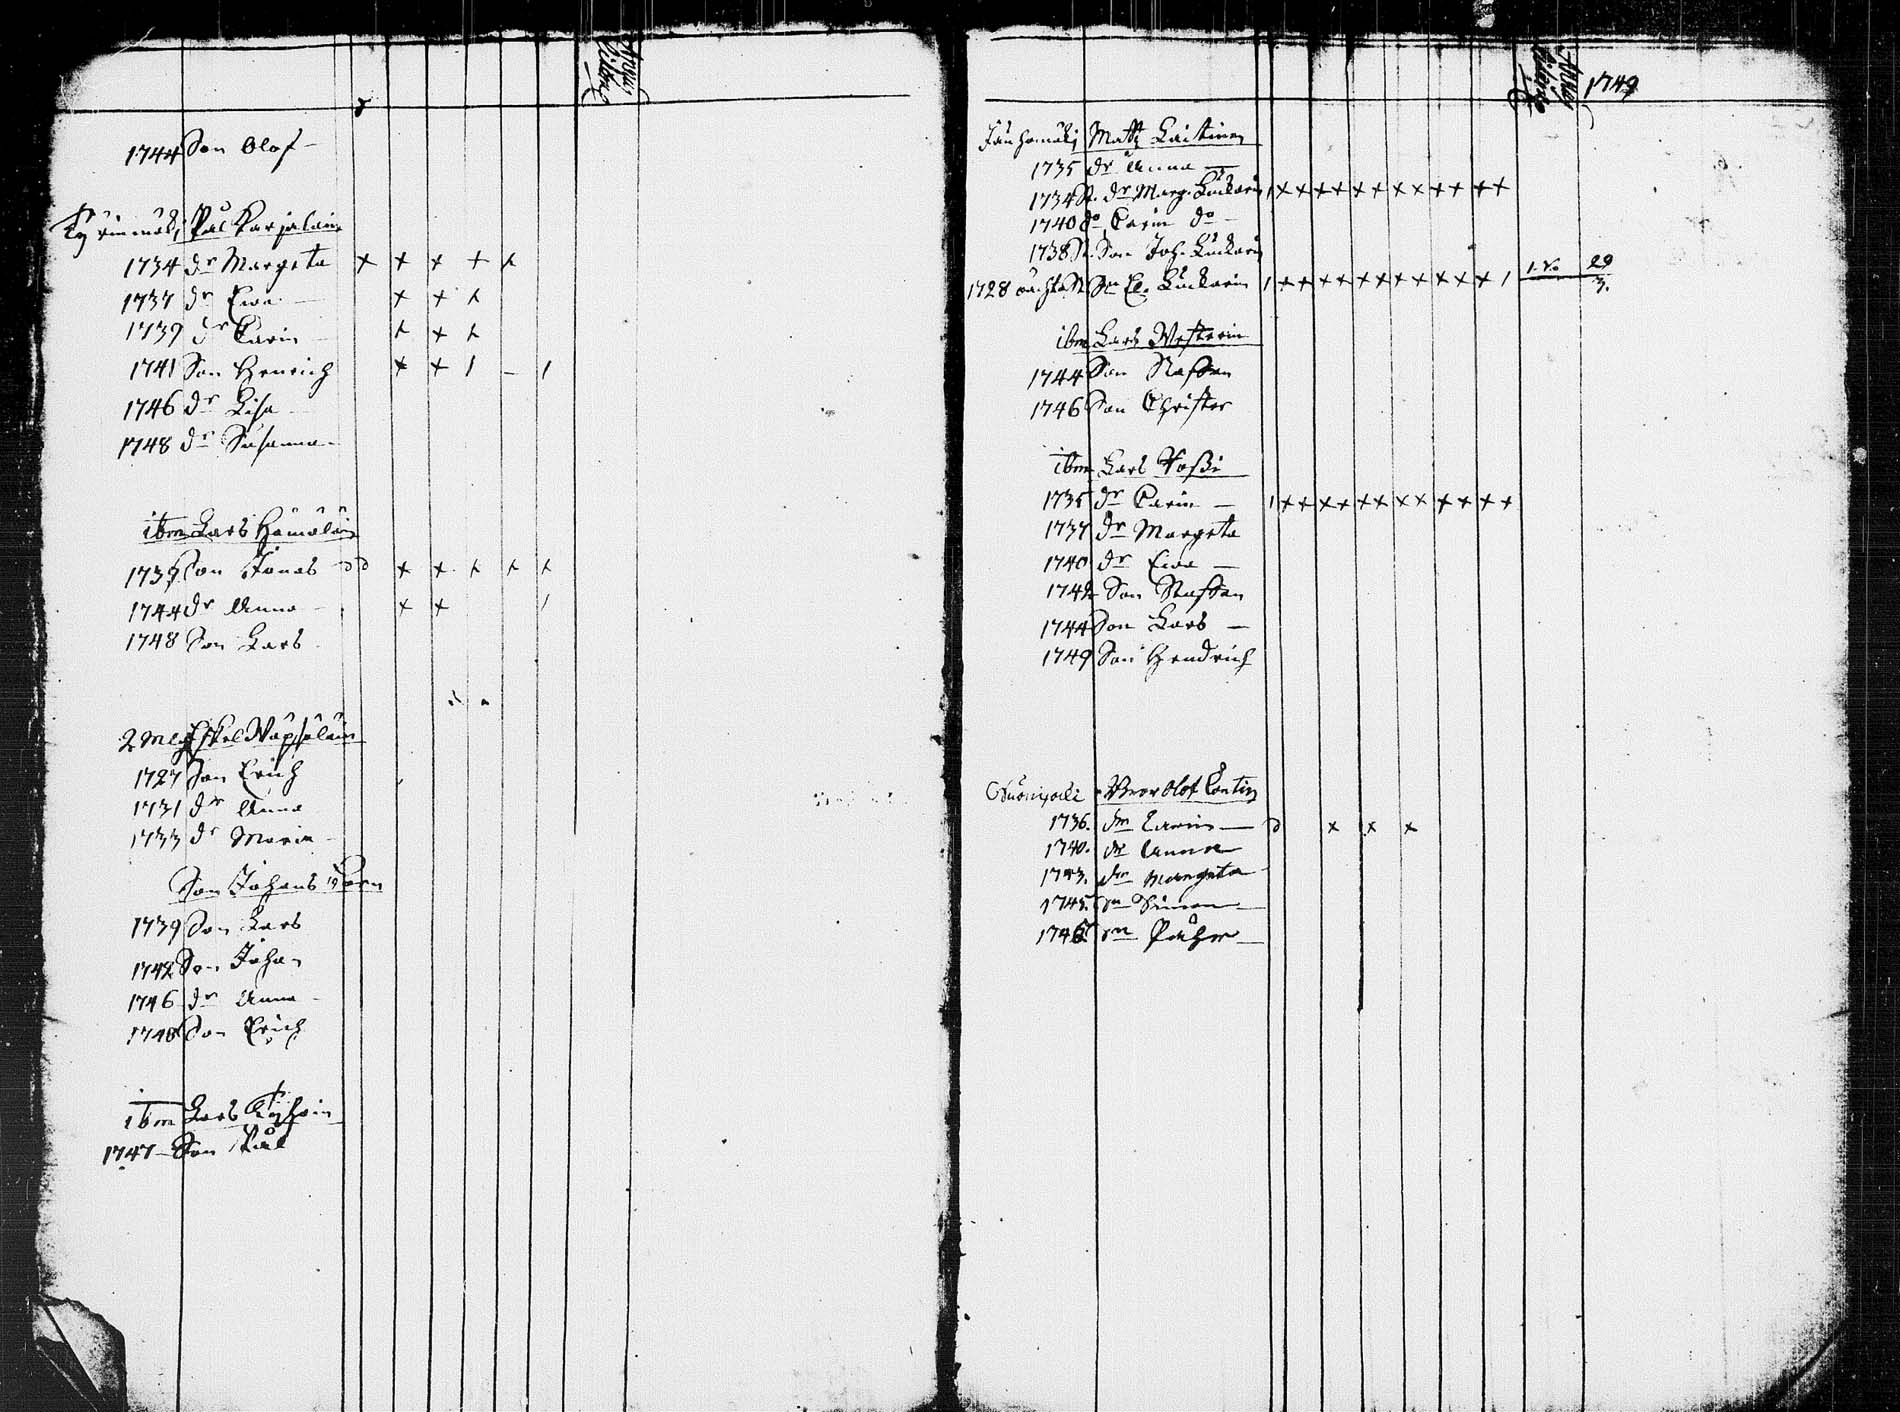 1744 Son Olof –
Kyrinmäki Pål Karjalain
1734 dr Margeta x x x + x
1737 dr Ewa – x x x
1739 dr Carin – x x x
1741 Son Henrich x x 1 – 1
1746 dr Lisa –
1748 dr Susanna –
ibm Lars Hämäläin
1739 Son Jonas x x x x x
1744 dr Anna – x x 1
1748 Son Lars
2 Eskel Wäpsäläin
1727 Son Erich
1731 dr Anna
1733 dr Maria –
Son Johans Barn
1739 Son Lars
1742 Son Johan
1746 dr Anna –
1748 Son Erich
ibm Lars
1747 – Son Pål
1749
Matts Laitinen
1735 dr Anna —
1734 St. dr Marg. 1 x x x x x x x x x x x x
1740 do Carin do –
1738 St. Son Joh.
1728 El. 1 x x x x x x x x x x x 1 29
3.
ibm Lars Westerin
1744 Son Staffan
1746 Son Christer
ibm Lars
1735 dr Carin — 1 x x x x x x x x x x x x
1737 dr Margeta
1740 dr Ewa —
1742 Son Staffan
1744 Son Lars —
1749 Son Hendrich
Olof
1736. dr Carin — x x x
1740. dr Anna
1743. dr Margeta
1745. Sn Simon —
1746 Sn Påhl —